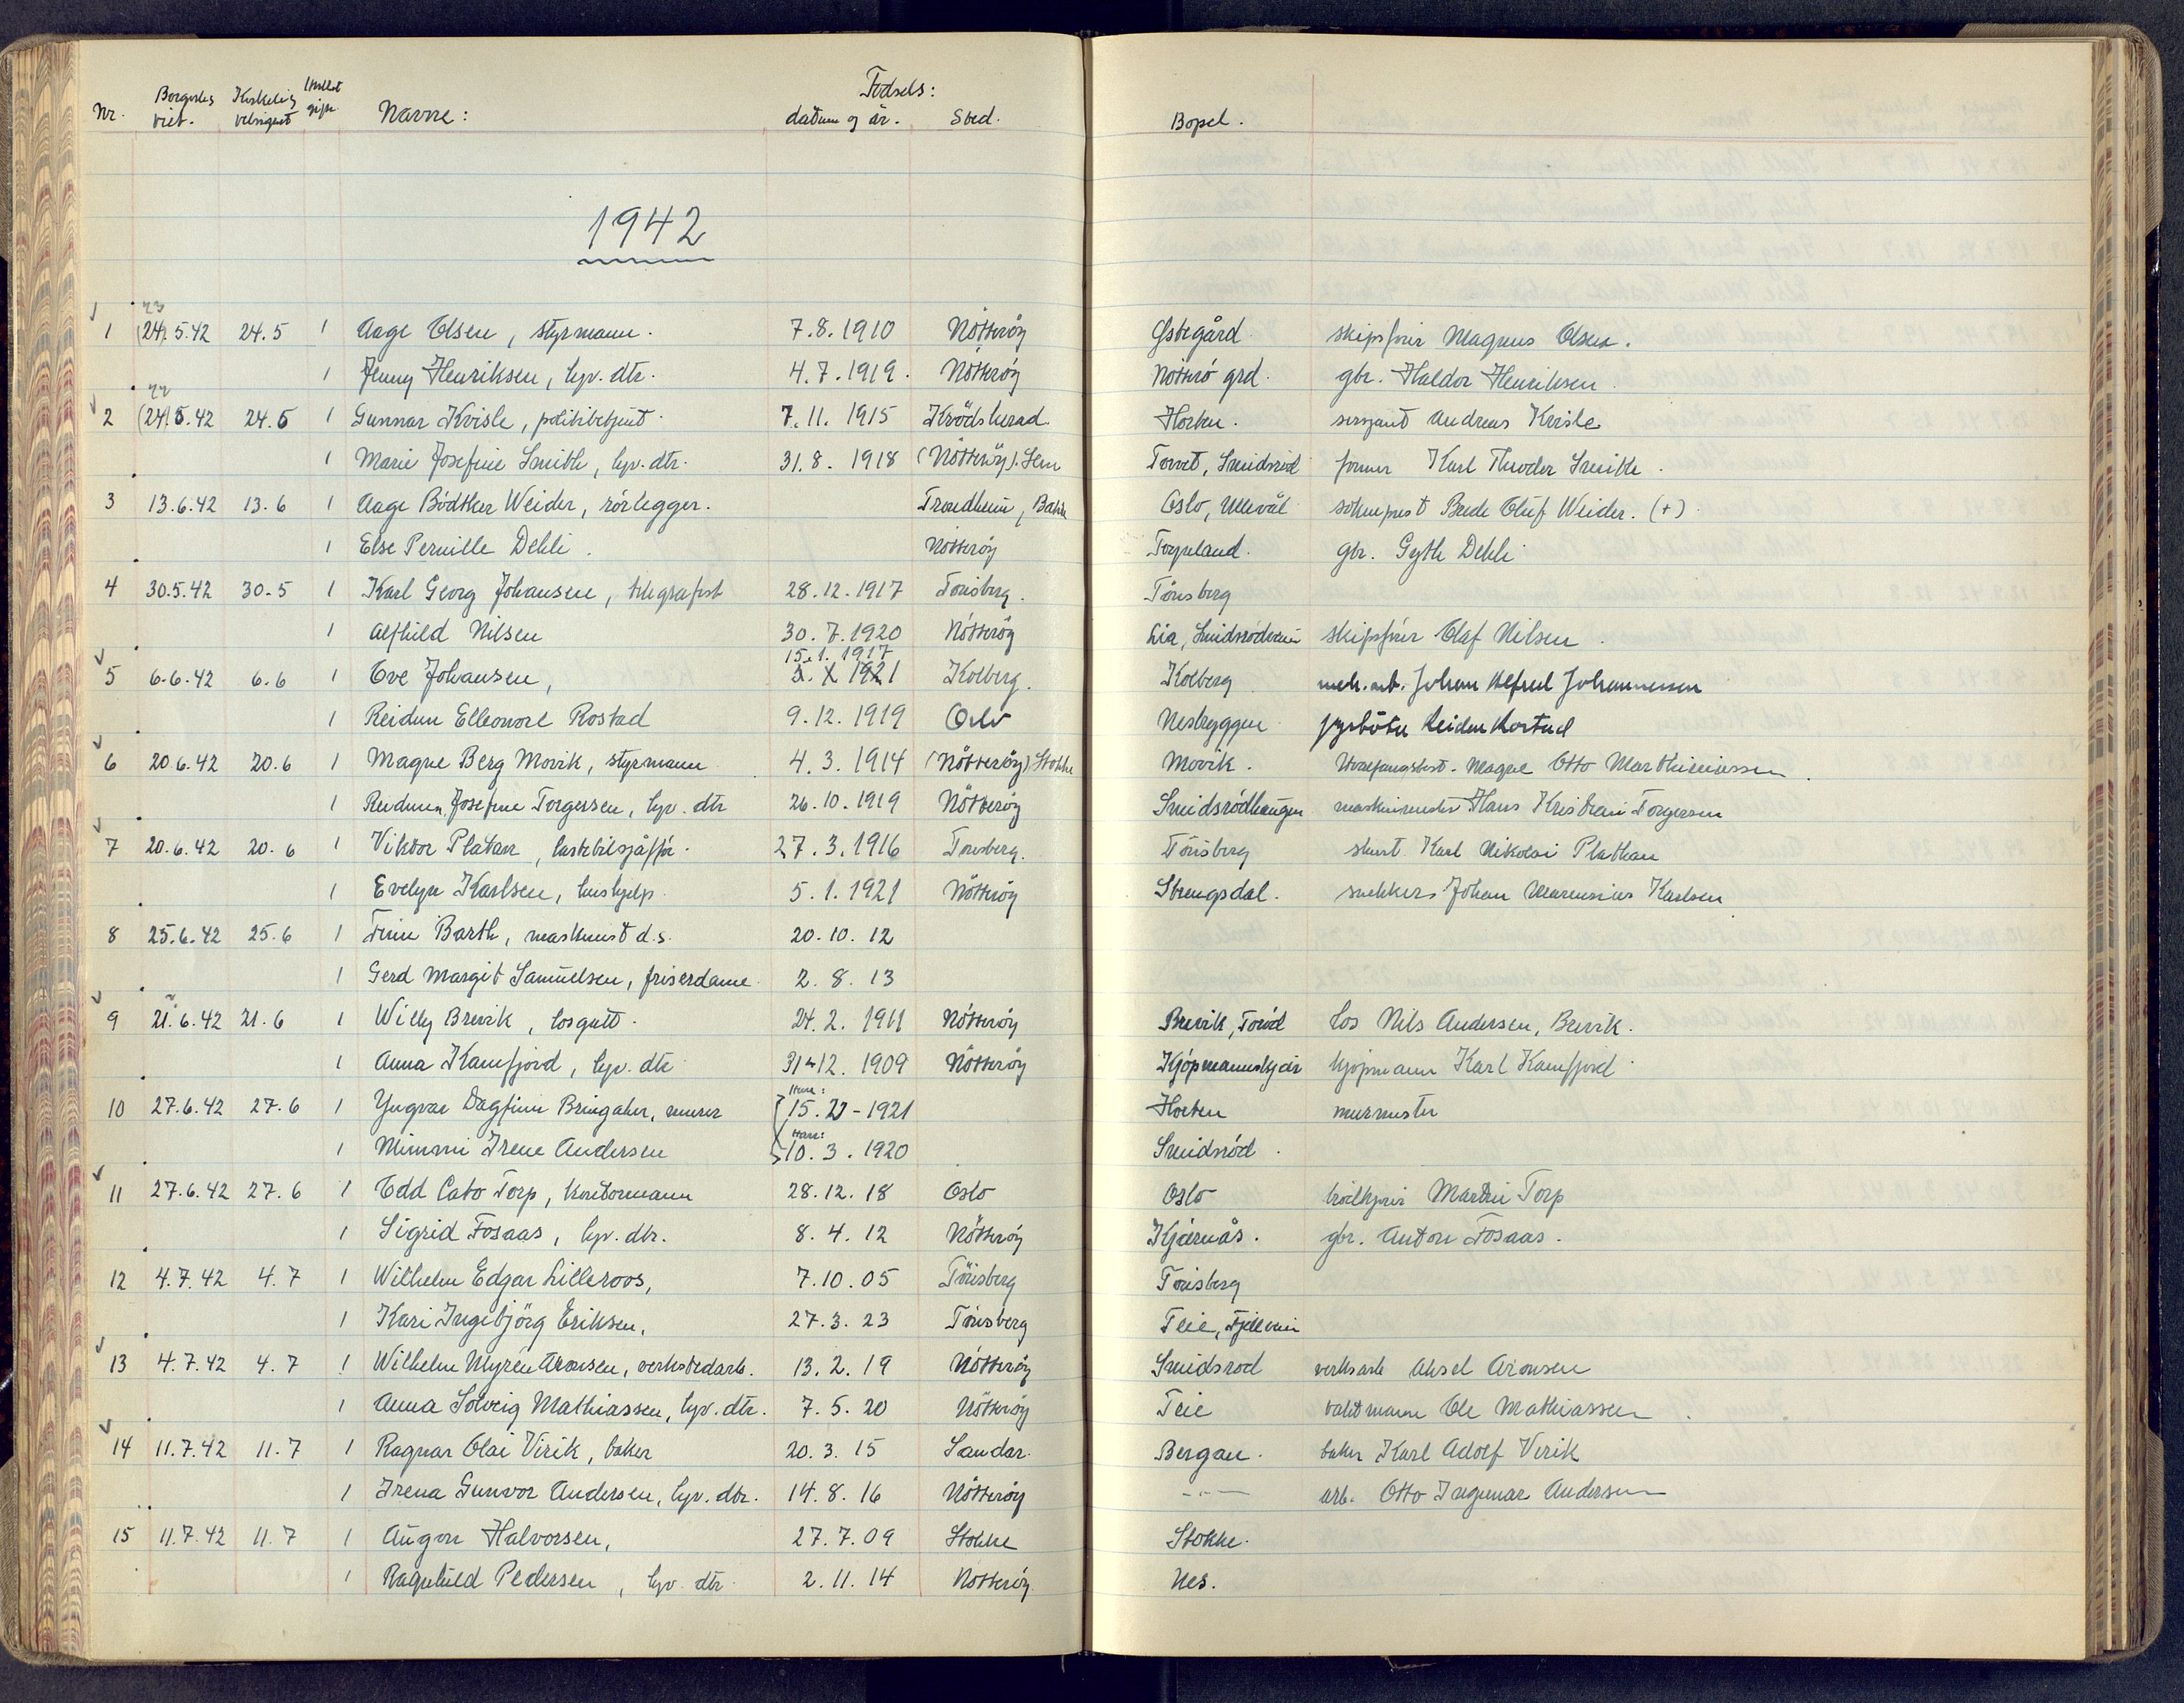 Fødsels:
Nr. Borgerlig viet. Kirkelig velsignet gift Navne: datum og år. Sted. Bopel.
1942
23
1 (24).5.42 24.5 1 Aage Olsen, styrmann. 7.8.1910 Nötteröy Østegård skipsfører Magnus Olsen.
1 Jenny Henriksen, hjv. dtr. 4.7.1919. Nötteröy Nötterö grd. gbr. Haldor Henriksen
22
2 (24).5.42 24.5 1 Gunnar Kvisle, politibetjent 7.11.1915 Krödsherad Horten. sersjant Andreas Kvisle
1 Marie Josefine Smith, hjv. dtr. 31.8.1918 (Nötteröy). Sem Torvet, Smidsröd former Karl Theodor Smith.
3 13.6.42 13.6 1 Aage Bödtker Weider, rörlegger. Trondheim, Bakke Oslo, Ullevål sokneprest Brede Oluf Weider. (+)
1 Else Pernille Dehli. Nötteröy Torpeland. gbr. Gyth Dehli
4 30.5.42 30.5 1 Karl Georg Johansen, telegrafist 28.12.1917 Tönsberg. Tönsberg
1 Alfhild Nilsen 30.7.1920 Nötteröy Lia, Smidsrödveien skipsfører Olaf Nilsen.
15.1.1917
5 6.6.42 6.6 1 Ove Johansen, 1921 Kolberg. Kolberg mek. arb. Johan Alfred Johannessen
1 Reidun Elleonore Rostad 9.12.1919 Oslo Nesbryggen fyrböter Reidar Rostad
6 20.6.42 20.6 1 Magne Berg Movik, styrmann 4.3.1914 (Nötteröy) Stokke Movik. Hvalfangstbest. Magne Otto Marthiniussen.
1 Reidunn Josefine Torgersen, hjv. dtr 26.10.1919 Nötteröy Smidsrödhaugen maskinmester Hans Kristian Torgersen
7 20.6.42 20.6 1 Viktor Platan, lastebilsjåfør. 27.3.1916 Tönsberg. Tönsberg Karl Nikolai Plathan
1 Evelyn Karlsen, hushjelp. 5.1.1921 Nötteröy Strengsdal. snekker Johan Marensius Karlsen
8 25.6.42 25.6 1 Finn Barth, maskinist d.s. 20.10.12
1 Gerd Margit Samuelsen, friserdame. 2.8.13
9 21.6.42 21.6 1 Willy Brevik, losgutt. 24.2.1911 Nötteröy Brevik, Toröd los Nils Andersen, Brevik.
1 Anna Kamfjord, hjv. dtr 31-12.1909 Nötteröy Kjöpmannskjær kjöpmann Karl Kamfjord
Hun:
10 27.6.42 27.6 1 Yngvar Dagfinn Bringaker, murer 15. -1921 Horten murmester
Han:
1 Mimmi Irene Andersen 10.3.1920 Smidsröd.
11 27.6.42 27.6 1 Odd Cato Torp, kontormann 28.12.18 Oslo Oslo Martin Torp
1 Sigrid Fosaas, hjv. dtr. 8.4.12 Nötteröy Kjærnås. gbr. Anton Fosaas.
12 4.7.42 4.7 1 Wilhelm Edgar Lilleroos, 7.10.05 Tönsberg Tönsberg
1 Kari Ingebjörg Eriksen, 27.3.23 Tönsberg Teie, Fjellveien
13 4.7.42 4.7 1 Wilhelm Myren Aronsen, verkstedarb. 13.2.19 Nötteröy Smidsröd verksarb Aksel Aronsen
1 Anna Solveig Mathiassen, hjv. dtr. 7.5.20 Nötteröy Teie vaktmann Ole Mathiassen.
14 11.7.42 11.7 1 Ragnar Olai Virik, baker 20.3.15 Sandar. Bergan. baker Karl Adolf Virik
1 Irena Gunvor Andersen, hjv. dtr. 14.8.16 Nötteröy - - — arb. Otto Ingemar Andersen
15 11.7.42 11.7 1 Augon Halvorsen, 27.7.09 Stokke Stokke.
1 Ragnhild Pedersen, hjv. dtr. 2.11.14 Nötteröy Nes.